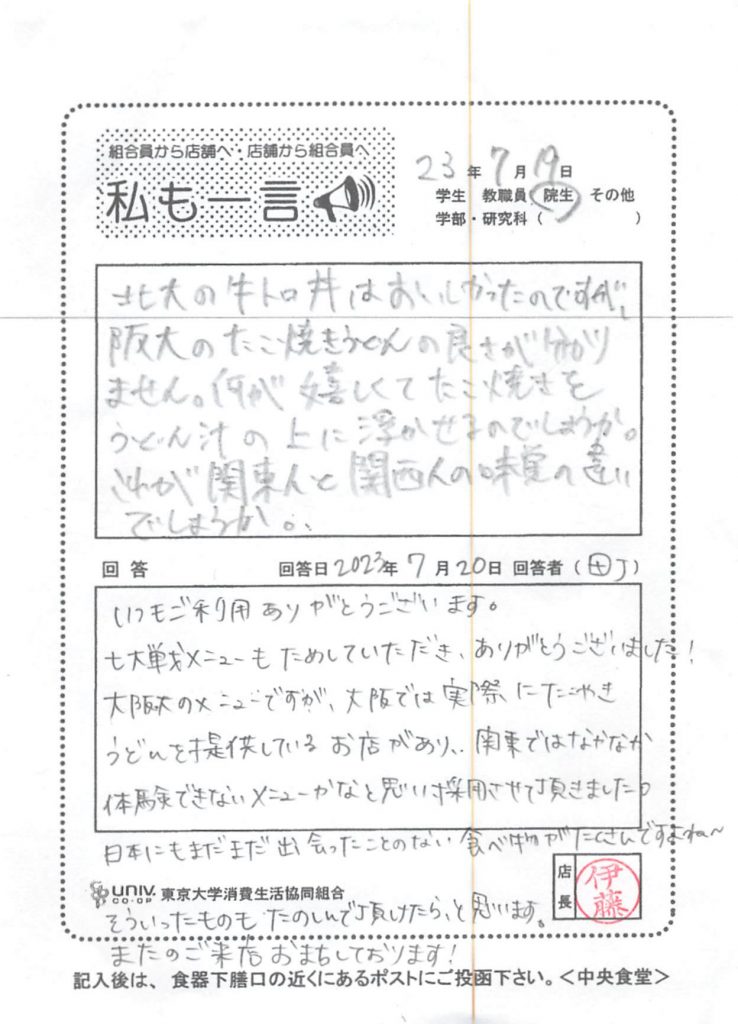 組合員から店舗へ・店舗から組合員へ
私も一言
23年7月19日
学生 教職員 院生 その他
学部・研究科( )
北大の牛トロ丼はおいしかったのですが、
阪大のたこ焼きうどんの良さが分かり
ません。何が嬉しくてたこ焼きを
うどん汁の上に浮かせるのでしょうか。
これが関東人と関西人の味覚の違い
でしょうか。
回答 回答日2023年7月20日 回答者( J)
いつもご利用ありがとうございます。
七大戦メニューもためしていただき、ありがとうございました!
大阪大のメニューですが、大阪では実際にたこやき
うどんを提供しているお店があり、関東ではなかなか
体験できないメニューかなと思い採用させて頂きました。
日本にもまだまだ出会ったことのない食べ物がたくさんですよね〜
店長
伊藤
UNIV. CO-OP 東京大学消費生活協同組合
そういったものもたのしんで頂けたら、と思います。
またのご来店おまちしております!
記入後は、食器下膳口の近くにあるポストにご投函下さい。<中央食堂>